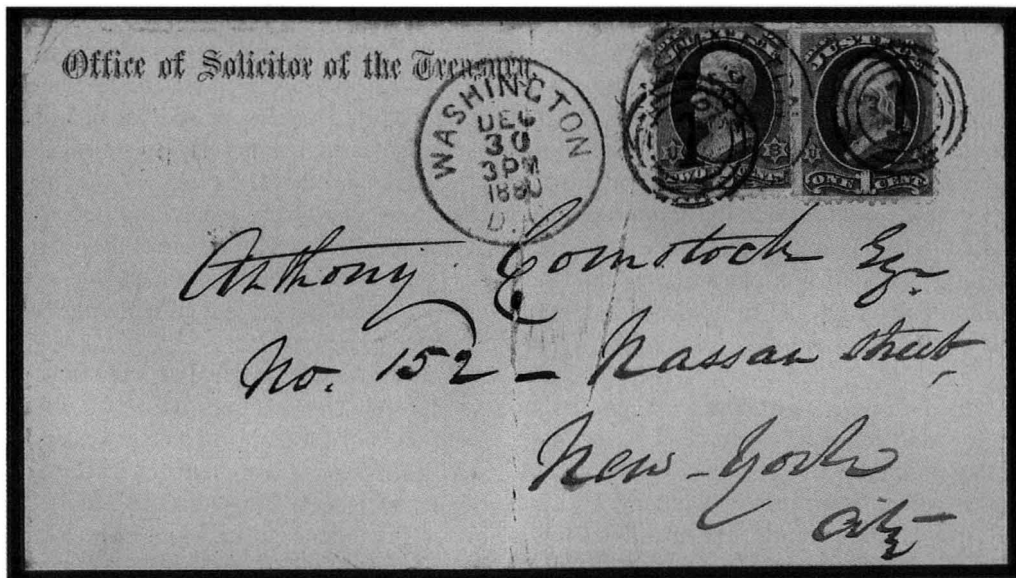 Office of Solicitor of the Treasury.
WASHINGTON
DEC
30
3PM
1880
D.C.
1
1
Anthony Comstock Esqr
No. 152 – Nassau street,
New-York
City